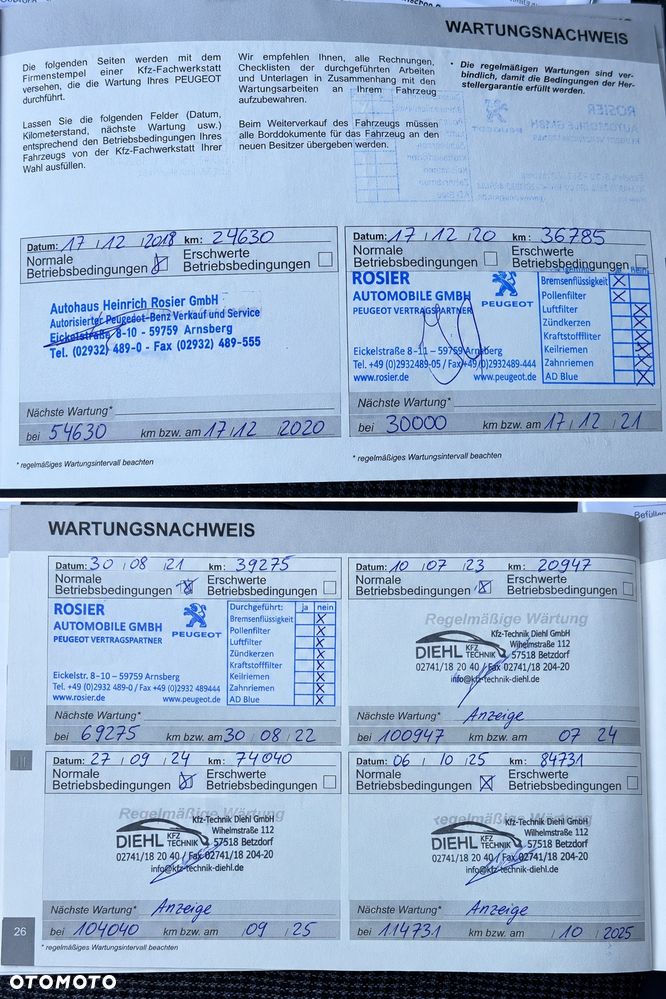 WARTUNGSNACHWEIS
Die folgenden Seiten werden mit dem
Firmenstempel einer Kfz-Fachwerkstatt
versehen, die die Wartung Ihres PEUGEOT
durchführt.
Lassen Sie die folgenden Felder (Datum,
Kilometerstand, nächste Wartung usw.)
entsprechend den Betriebsbedingungen Ihres
Fahrzeugs von der Kfz-Fachwerkstatt Ihrer
Wahl ausfüllen.
Wir empfehlen Ihnen, alle Rechnungen,
Checklisten der durchgeführten Arbeiten
und Unterlagen in Zusammenhang mit den
Wartungsarbeiten an Ihrem Fahrzeug
aufzubewahren.
Beim Weiterverkauf des Fahrzeugs müssen
alle Borddokumente für das Fahrzeug an den
neuen Besitzer übergeben werden.
• Die regelmäßigen Wartungen sind ver-
bindlich, damit die Bedingungen der Her-
stellergarantie erfüllt werden.
Datum: 17 / 12 / 2018 km: 24630
Normale Betriebsbedingungen Erschwerte Betriebsbedingungen
Autohaus Heinrich Rosier GmbH
Autorisierter Peugeot-Benz Verkauf und Service
Eickelstraße 8-10 - 59759 Arnsberg
Tel. (02932) 489-0 - Fax (02932) 489-555
Nächste Wartung*
bei 54630 km bzw. am 17 / 12 / 2020
* regelmäßiges Wartungsintervall beachten
Datum: 17 / 12 / 20 km: 36785
Normale Betriebsbedingungen Erschwerte Betriebsbedingungen
ROSIER
AUTOMOBILE GMBH
PEUGEOT VERTRAGSPARTNER
PEUGEOT
Eickelstraße 8-11 – 59759 Arnsberg
Tel. +49 (0)2932489-05 / Fax +49 (0)2932489-444
www.rosier.de www.peugeot.de
Bremsenflüssigkeit
Pollenfilter
Luftfilter
Zündkerzen
Kraftstofffilter
Keilriemen
Zahnriemen
AD Blue
Nächste Wartung*
bei 30000 km bzw. am 17 / 12 / 21
* regelmäßiges Wartungsintervall beachten
WARTUNGSNACHWEIS
Datum: 30 / 08 / 21 km: 39275
Normale Betriebsbedingungen Erschwerte Betriebsbedingungen
ROSIER
AUTOMOBILE GMBH
PEUGEOT VERTRAGSPARTNER
PEUGEOT
Eickelstr. 8–10 – 59759 Arnsberg
Tel. +49 (0)2932 489-0 / Fax +49 (0)2932 489444
www.rosier.de www.peugeot.de
Durchgeführt: ja nein
Bremsenflüssigkeit
Pollenfilter
Luftfilter
Zündkerzen
Kraftstofffilter
Keilriemen
Zahnriemen
AD Blue
Nächste Wartung*
bei 69275 km bzw. am 30 / 08 / 22
Datum: 10 / 07 / 23 km: 20947
Normale Betriebsbedingungen Erschwerte Betriebsbedingungen
Regelmäßige Wartung
Kfz-Technik Diehl GmbH
Wilhelmstraße 112
DIEHL KFZ TECHNIK 57518 Betzdorf
02741/18 20 40 / Fax 02741/18 204-20
info@kfz-technik-diehl.de
Nächste Wartung* Anzeige
bei 100947 km bzw. am 07 24
Datum: 27 / 09 / 24 km: 74040
Normale Betriebsbedingungen Erschwerte Betriebsbedingungen
Regelmäßige Wartung
Kfz-Technik Diehl GmbH
Wilhelmstraße 112
DIEHL KFZ TECHNIK 57518 Betzdorf
02741/18 20 40 / Fax 02741/18 204-20
info@kfz-technik-diehl.de
Nächste Wartung* Anzeige
bei 104040 km bzw. am / 09 / 25
Datum: 06 / 10 / 25 km: 84731
Normale Betriebsbedingungen Erschwerte Betriebsbedingungen
Regelmäßige Wartung
Kfz-Technik Diehl GmbH
Wilhelmstraße 112
DIEHL KFZ TECHNIK 57518 Betzdorf
02741/18 20 40 / Fax 02741/18 204-20
info@kfz-technik-diehl.de
Nächste Wartung* Anzeige
bei 114731 km bzw. am / 10 / 2025
26
* regelmäßiges Wartungsintervall beachten
OTOMOTO